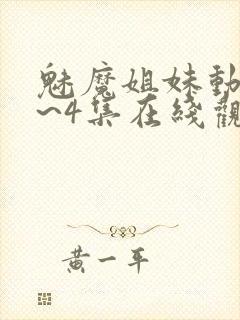 魅魔姐妹動
~4集在綫觀
黃一平